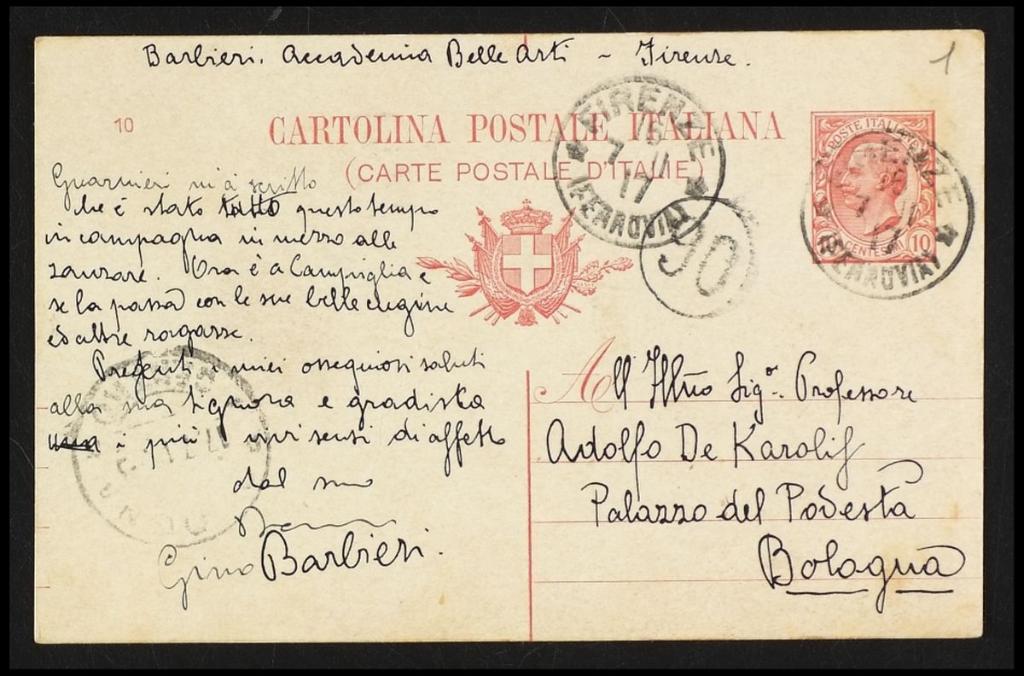 Barbieri. Accademia Belle Arti - Firenze.
1
10
CARTOLINA POSTALE ITALIANA
(CARTE POSTALE D'ITALIE)
POSTE ITALIANE
CENTESIMI 10
FIRENZE
15
7 11
17
(FERROVIA)
FIRENZE
7 11
17
(FERROVIA)
90
Guarnieri m'à scritto
che è stato tutto questo tempo
in campagna in mezzo alle
zanzare. Ora è a Campiglia e
se la passa con le sue belle cugine
ed altre ragazze.
Presenti i miei ossequiosi saluti
alla sua Signora e gradisca
i più vivi sensi di affetto
dal suo
Gino Barbieri.
All Illmo Sigr. Professore
Adolfo De Karolis
Palazzo del Podestà
Bologna